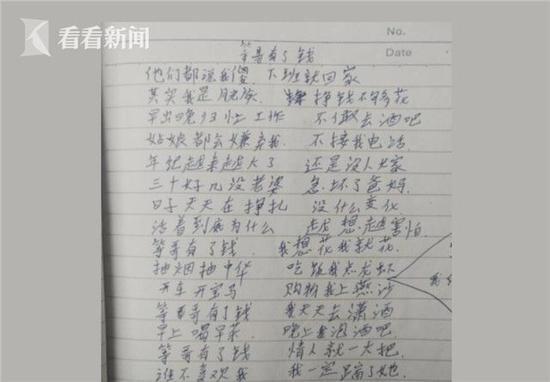 看看新闻
No.
Date
等哥有了钱
他们都说我傻 下班就回家
其实我是月光族 挣钱不够花
早出晚归忙工作 不敢去酒吧
姑娘都会嫌弃我 不接我电话
年纪越来越大了 还是没人来嫁
三十好几没老婆 急坏了爸妈
日子天天在挣扎 没什么变化
活着到底为什么 越想越害怕
等哥有了钱 我想花我就花
抽烟抽中华 吃饭我点龙虾
开车开宝马 购物我上燕沙
等哥有了钱 我天天去潇洒
早上喝早茶 晚上去泡酒吧
等哥有了钱 情人就一大把
谁不喜欢我 我一定踹了她